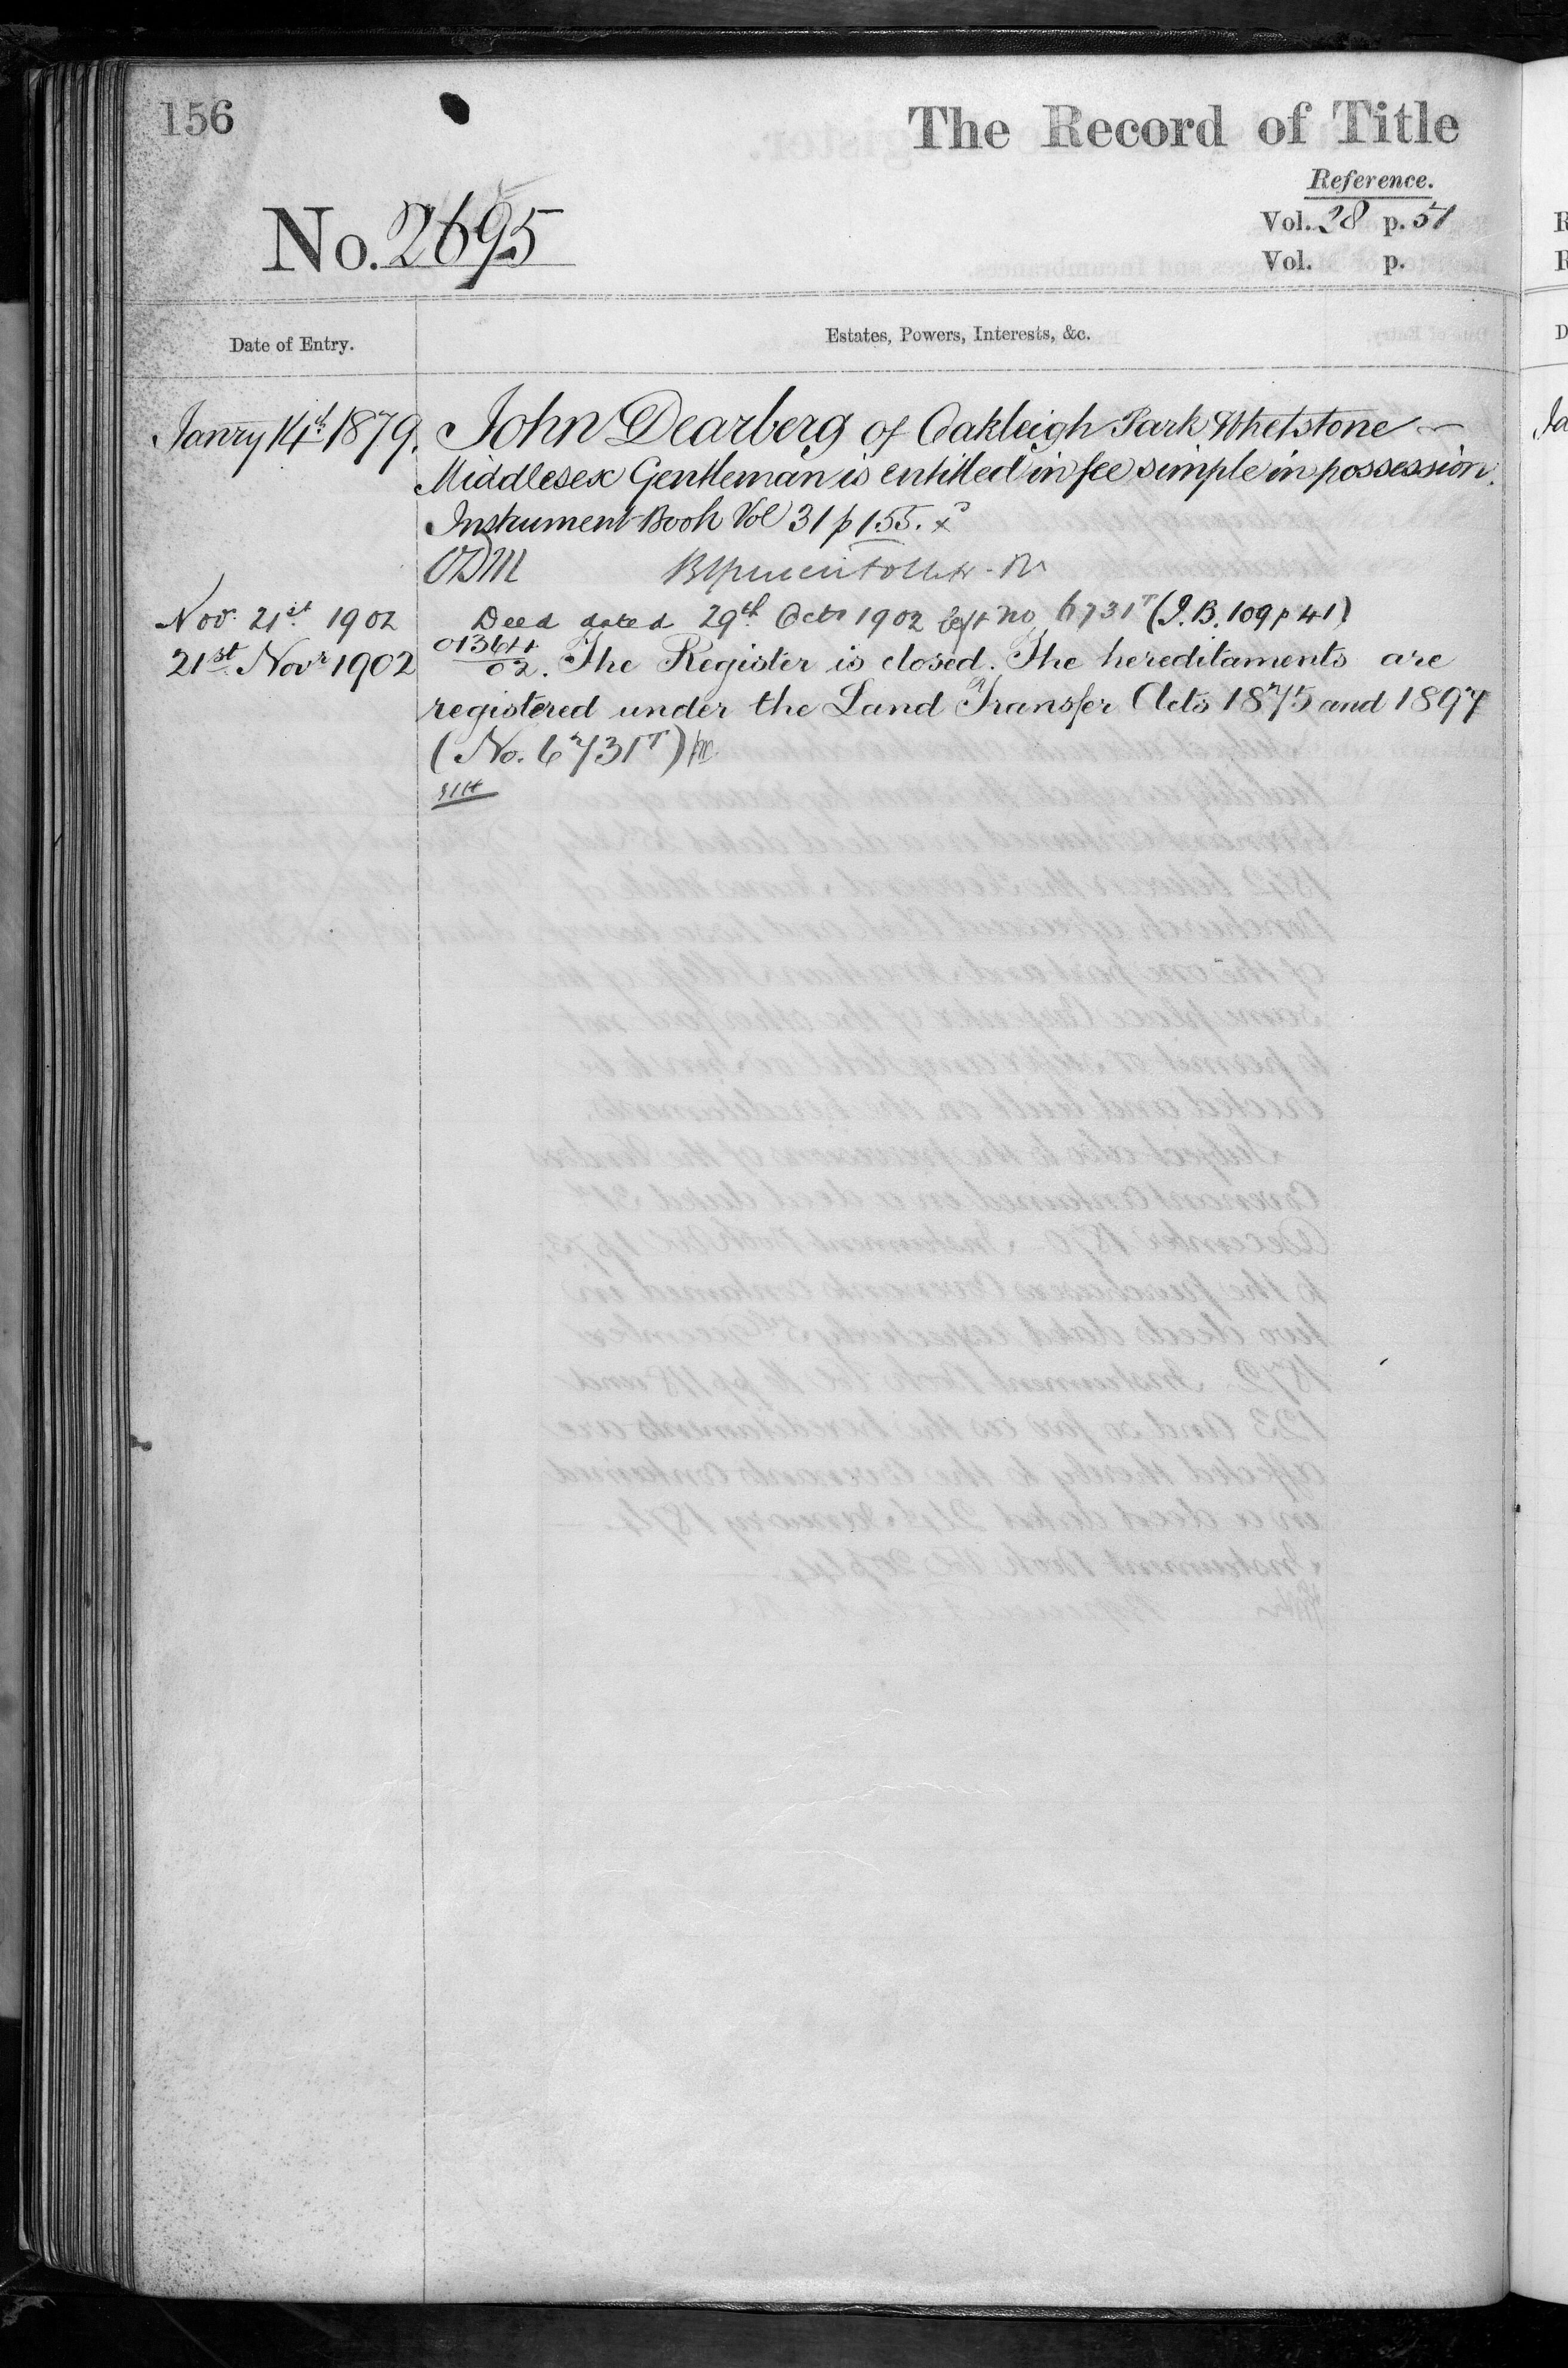 156
The Record of Title
Reference.
No. 2695
Vol. 28 p. 51
Vol. p.
Date of Entry.
Estates, Powers, Interests, &c.
Janry 14th 1879. John Dearberg of Oakleigh Park Whetstone
Middlesex Gentleman is entitled in fee simple in possession.
Instrument Book Vol 31 p 155.
Nov. 21st 1902 Deed dated 29th Octr 1902 no 6731T (I.B. 109 p 41)
21st Novr 1902 02. The Register is closed. The hereditaments are
registered under the Land Transfer Acts 1875 and 1897
(No. 6731T)